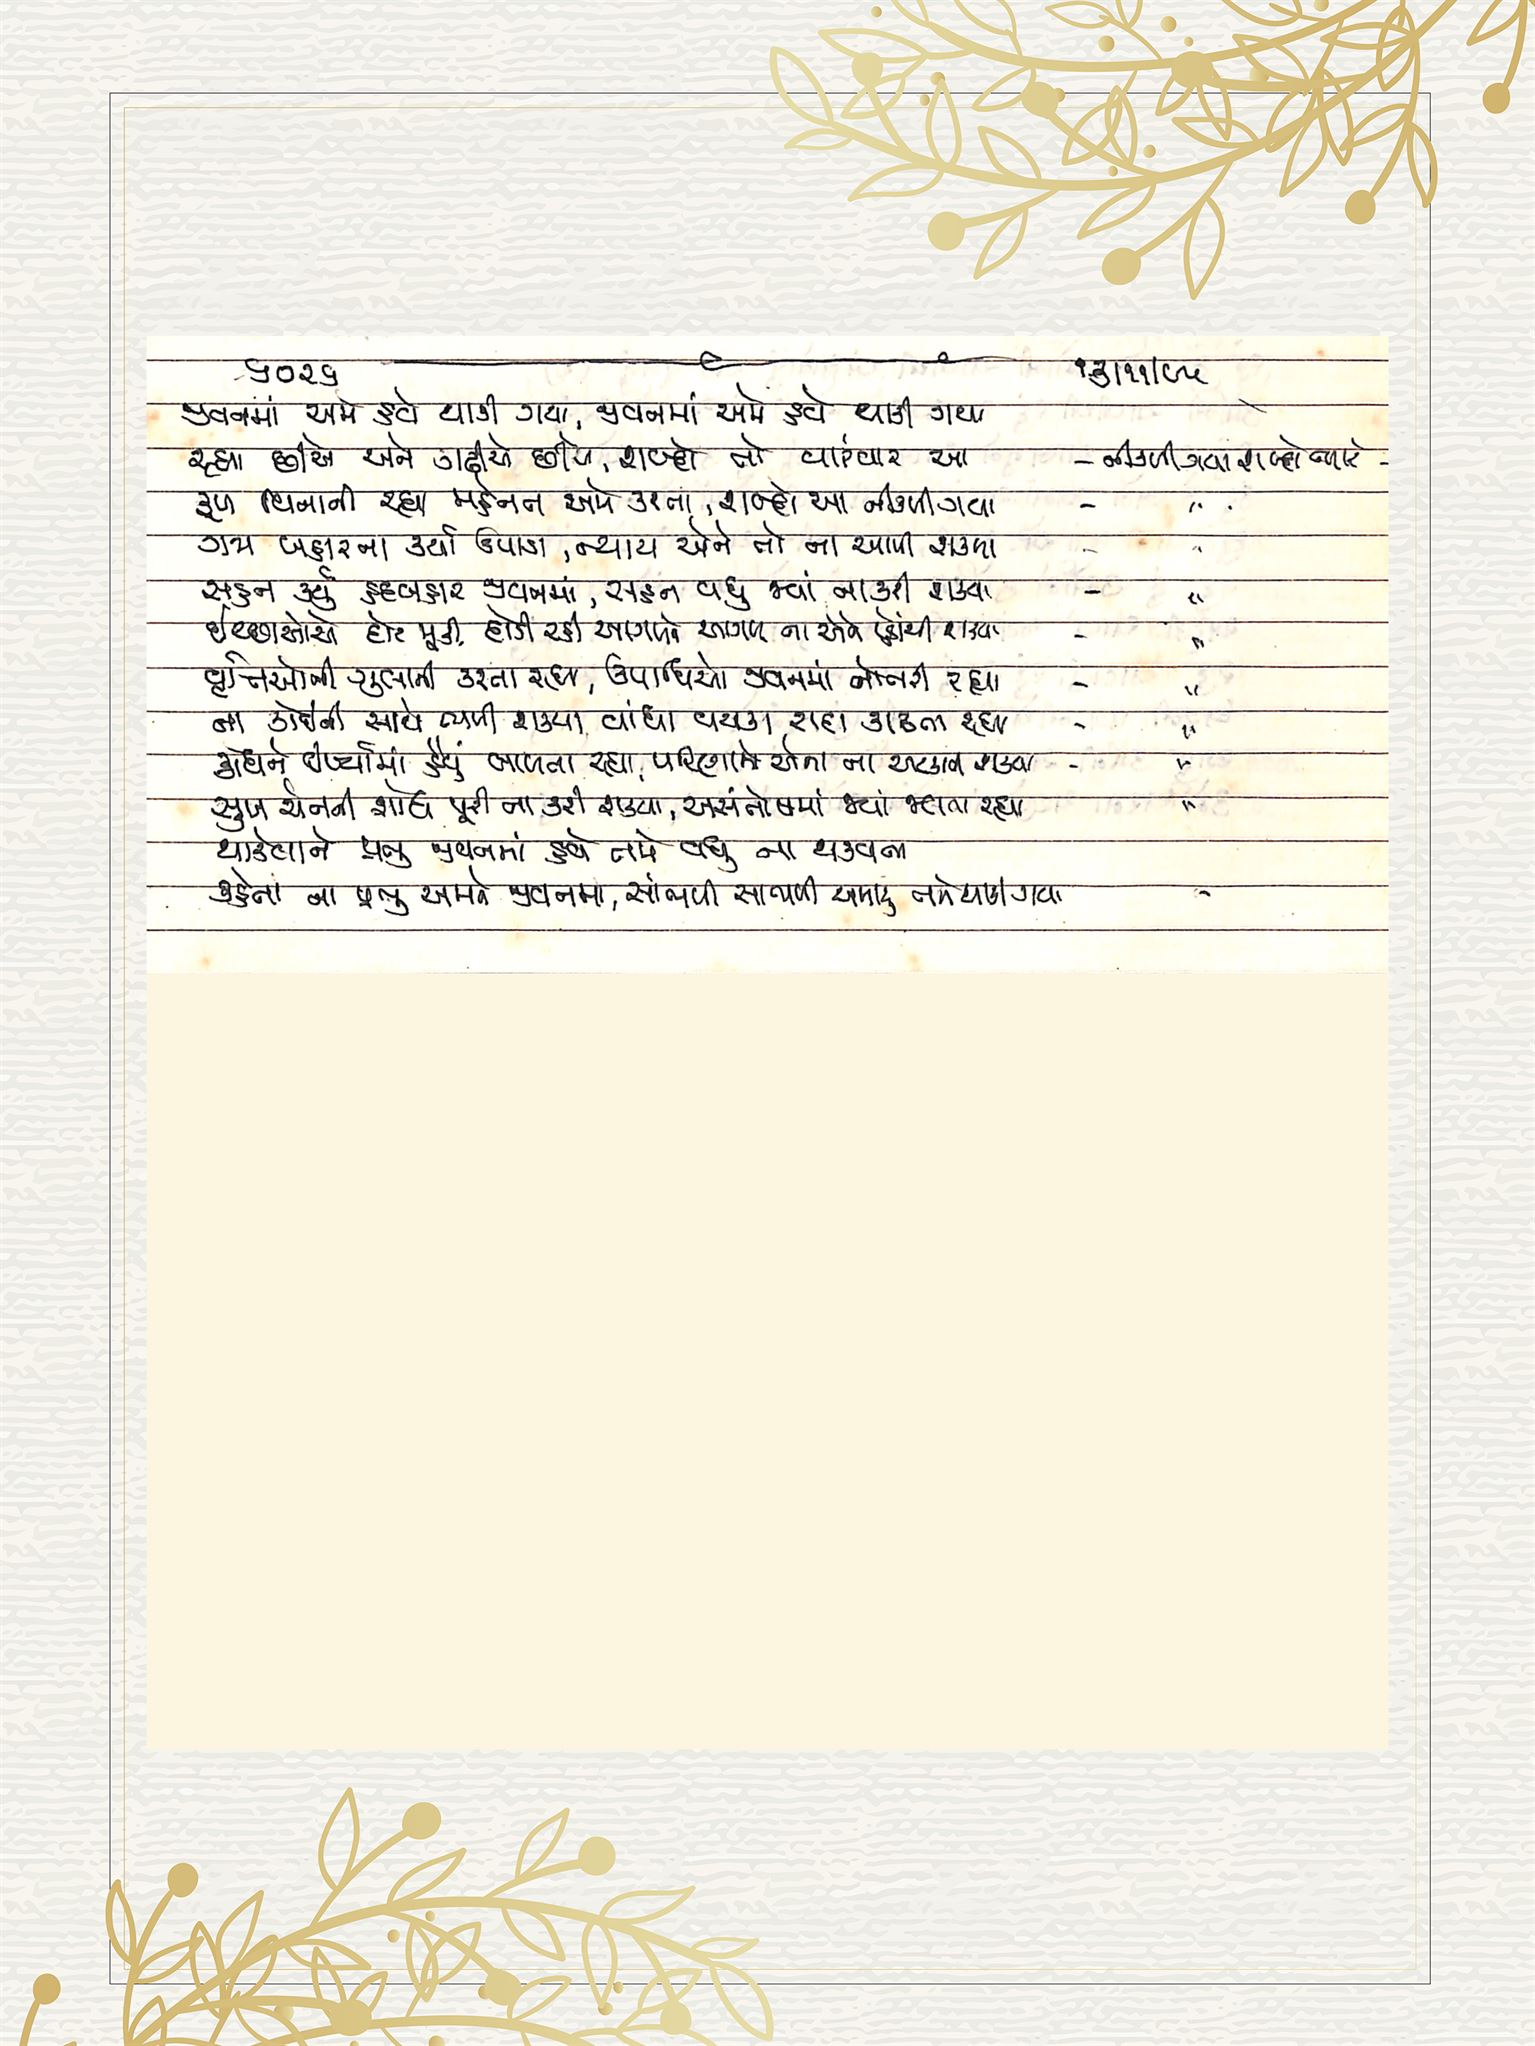 ૬૦૨૬ ૧૩/૧૧/૯૫
જીવનમાં અમે હવે થાકી ગયા, જીવનમાં અમે હવે થાકી ગયા
રહ્યા છીએ અને કાઢીએ છીએ, શબ્દો તો વારંવાર આ - નીકળી ગયા શબ્દો ત્યારે -
ફળ વિનાની રહ્યા મહેનત અમે કરતા, શબ્દો આ નીકળી ગયા - "
ગજા બહારના કર્યા ઉપાડા, ન્યાય એને તો ના આપી શક્યા - "
સહન કર્યું હદબહાર જીવનમાં, સહન વધુ જ્યાં ના કરી શક્યા - "
ઇચ્છાઓએ દોટ મૂકી, દોડી રહી આગળને આગળ ના એને પહોંચી શક્યા - "
વૃત્તિઓની ગુલામી કરતા રહ્યા, ઉપાધિઓ જીવનમાં નોતરી રહ્યા - "
ના કોઈની સાથે ભળી શક્યા, વાંધા વચકા સદા કાઢતા રહ્યા - "
ક્રોધને ઈર્ષ્યામાં હૈયું બાળતા રહ્યા, પરિણામો એના ના અટકાવી શક્યા - "
સુખ ચેનની શોધ પૂરી ના કરી શક્યા, અસંતોષમાં જ્યાં જલતા રહ્યા "
થાકેલાને પ્રભુ જીવનમાં હવે તમે વધુ ના થકવતા
કહેતા ના પ્રભુ અમને જીવનમાં, સાંભળી સાંભળી અમારું તમે થાકી ગયા -